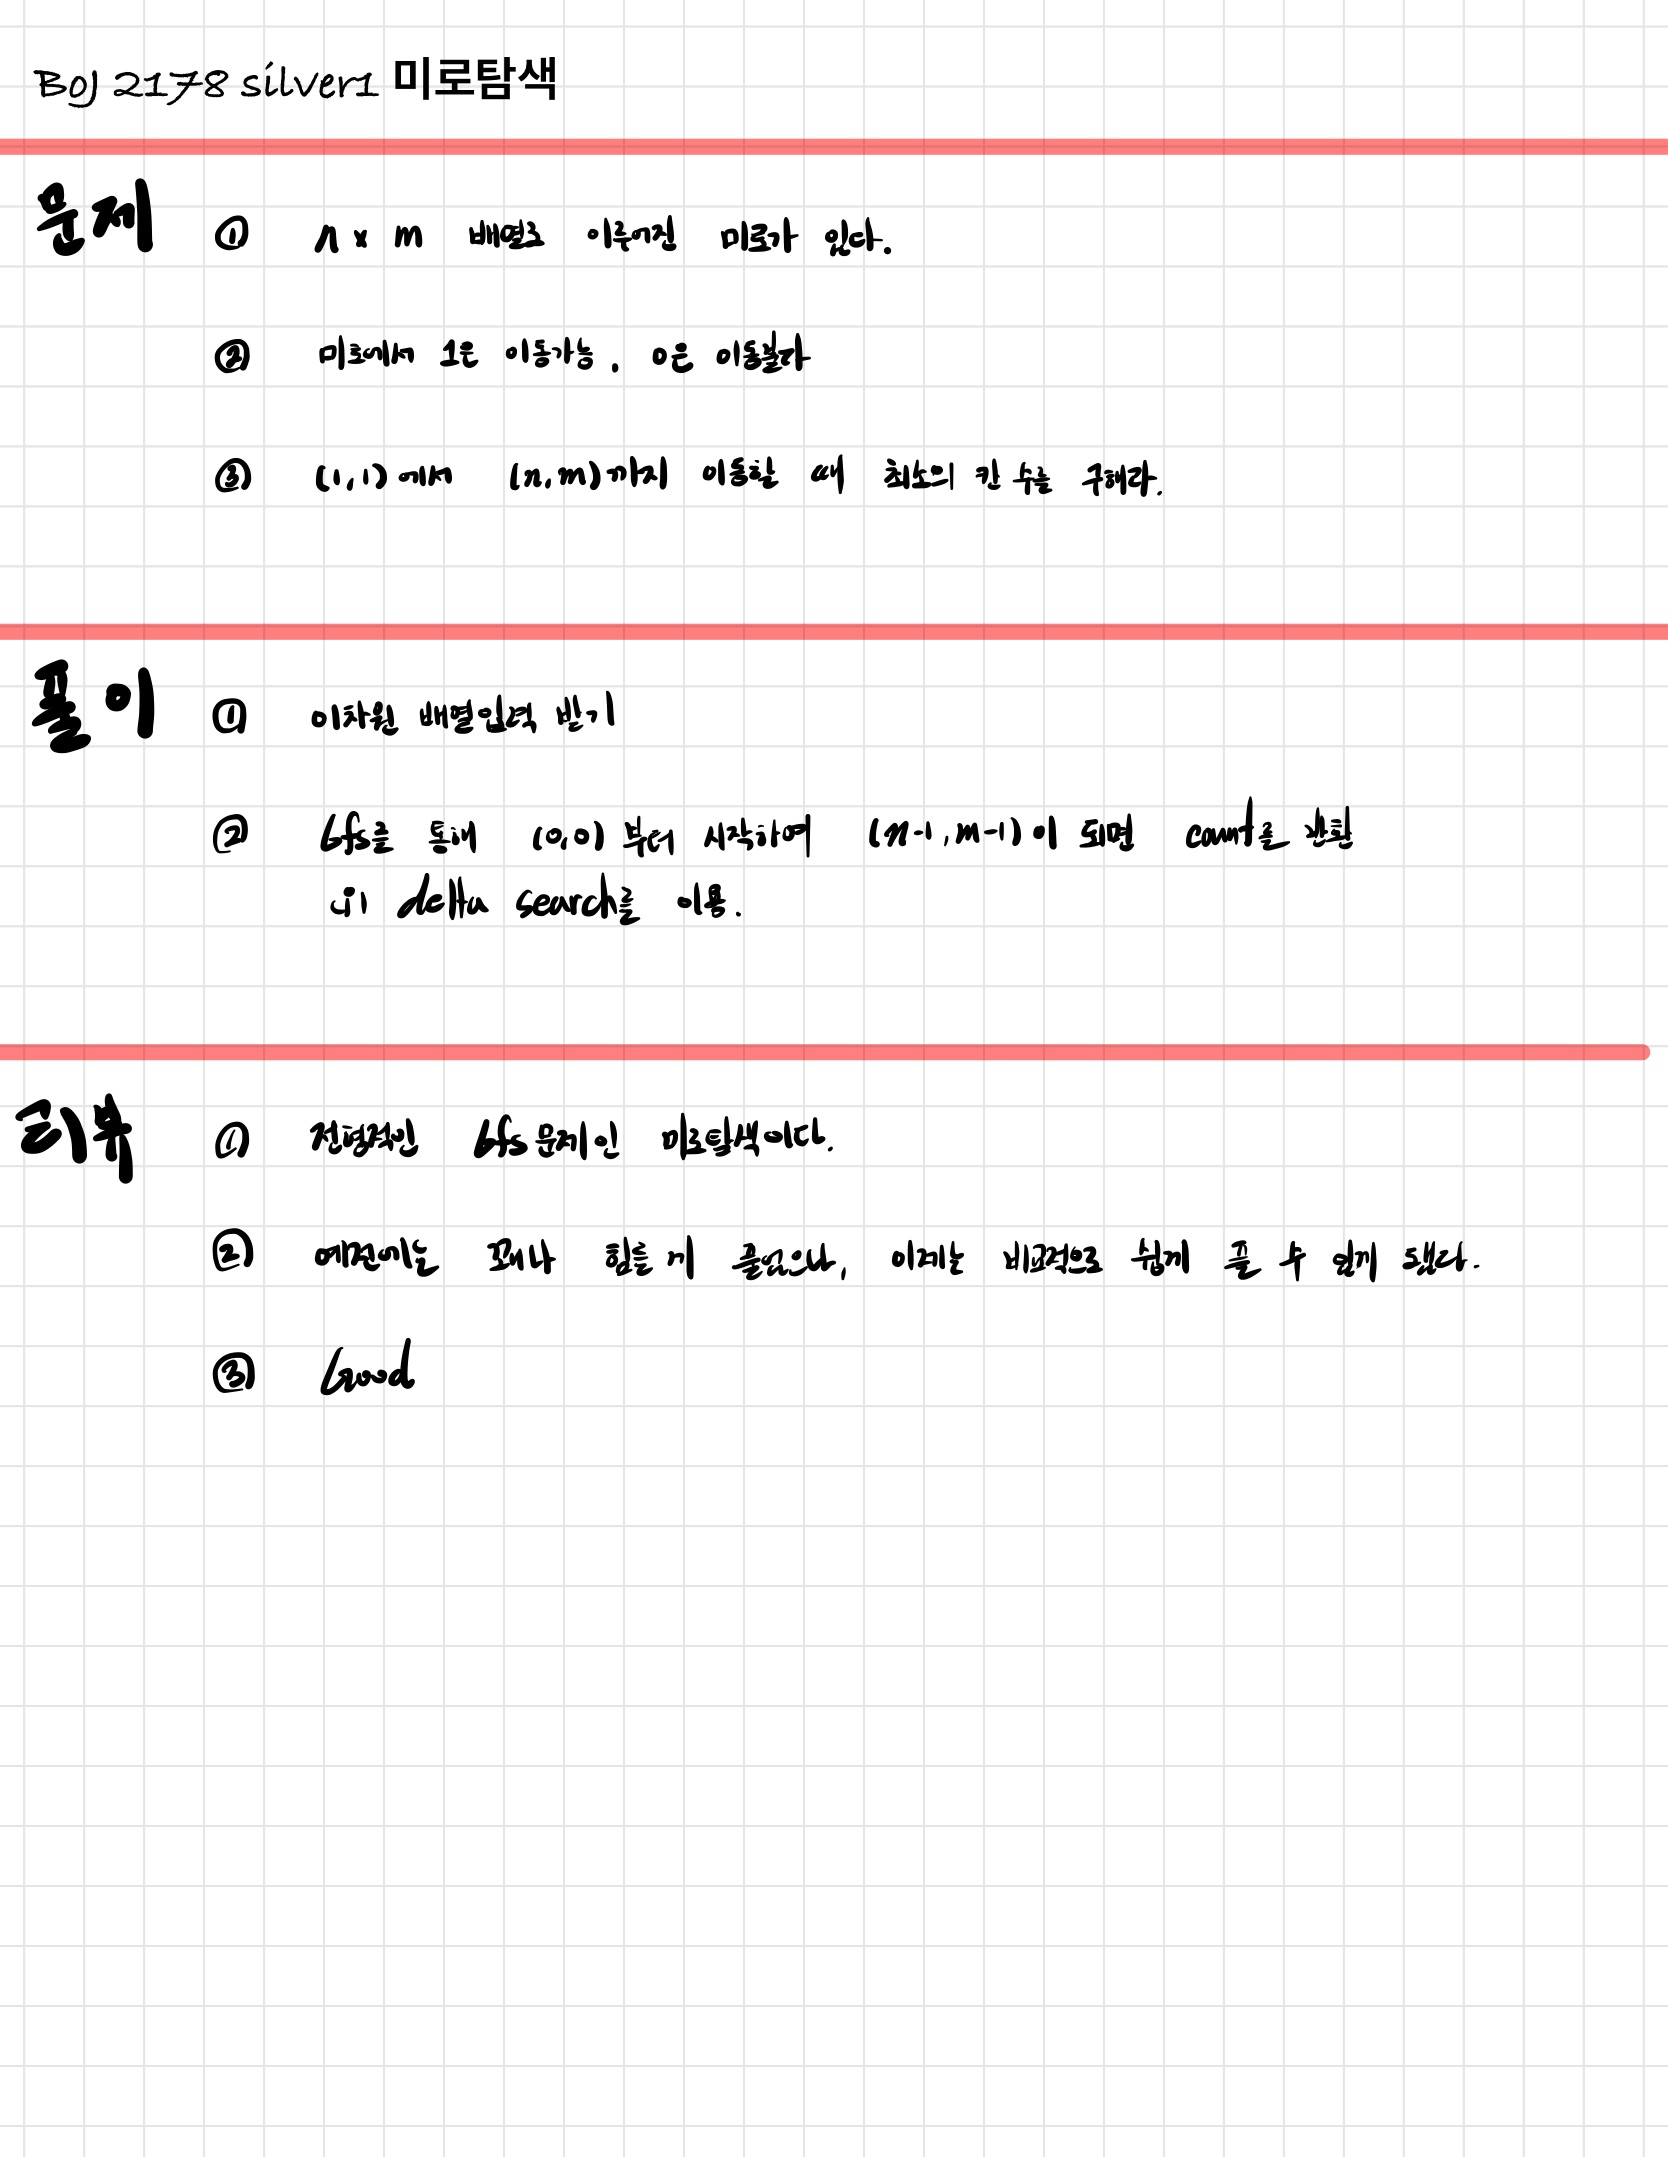 BOJ 2178 silver1 미로탐색
문제 ① n x m 배열로 이루어진 미로가 있다.
② 미로에서 1은 이동가능, 0은 이동불가
③ (1,1)에서 (n,m)까지 이동할 때 최소의 칸 수를 구해라.
풀이 ① 이차원 배열입력 받기
② bfs를 통해 (0,0)부터 시작하여 (n-1,m-1)이 되면 count를 반환
delta search를 이용.
리뷰 ① 전형적인 bfs문제인 미로탐색이다.
② 예전에는 꽤나 힘들게 풀었으나, 이제는 비교적으로 쉽게 풀 수 있게 됐다.
③ Good